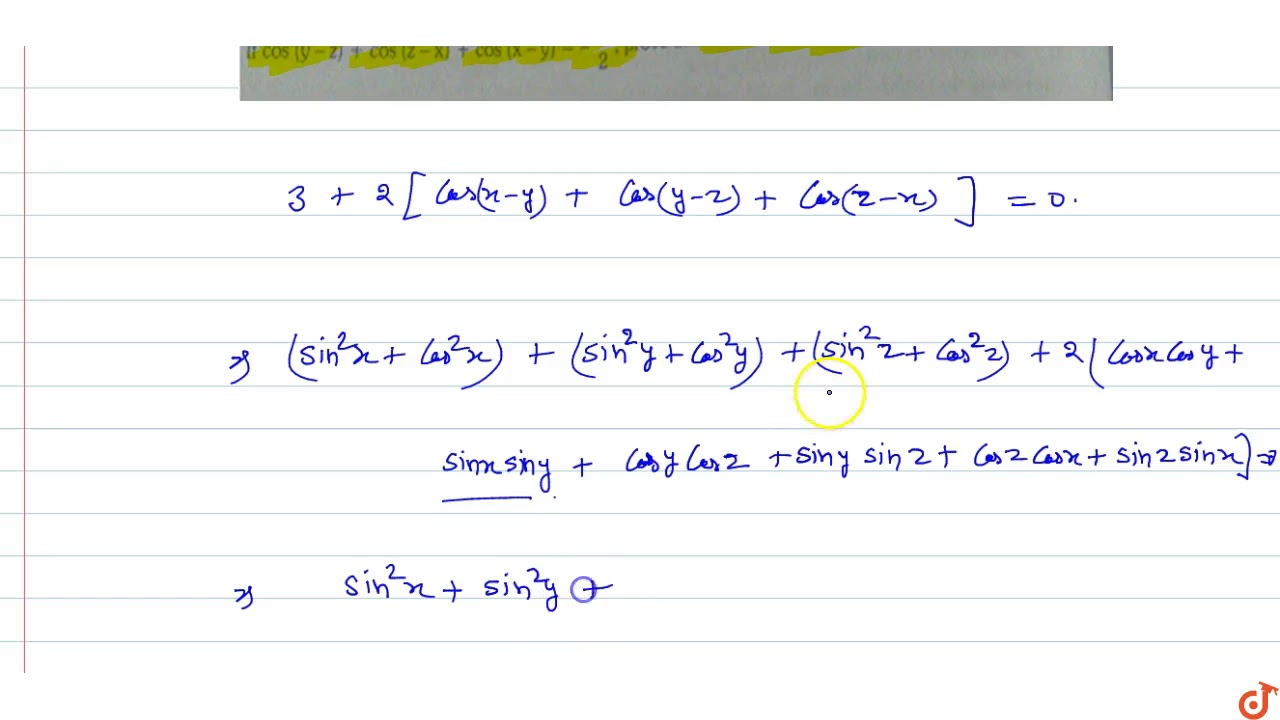 If cos (y – z) + cos (z – x) + cos (x – y) = – /2,
3 + 2[Cos(x-y) + Cos(y-z) + Cos(z-x)] = 0.
⇒ (sin²x + Cos²x) + (sin²y + Cos²y) + (sin²z + Cos²z) + 2(Cosx Cosy +
sinx siny + Cosy Cosz + siny sinz + Cosz Cosx + sinz sinx] =
⇒ sin²x + sin²y +